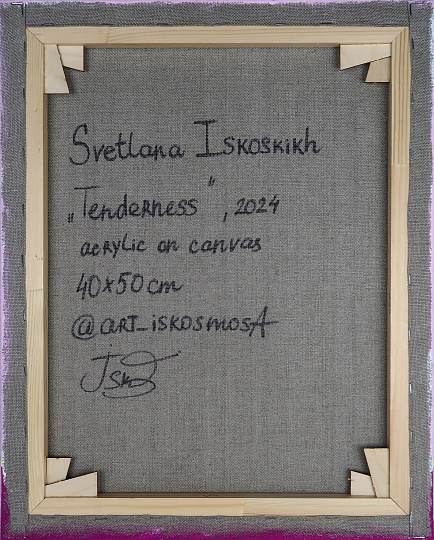 Svetlana Iskoskikh
„Tenderness", 2024
acrylic on canvas
40x50 cm
@art_iskosmosA